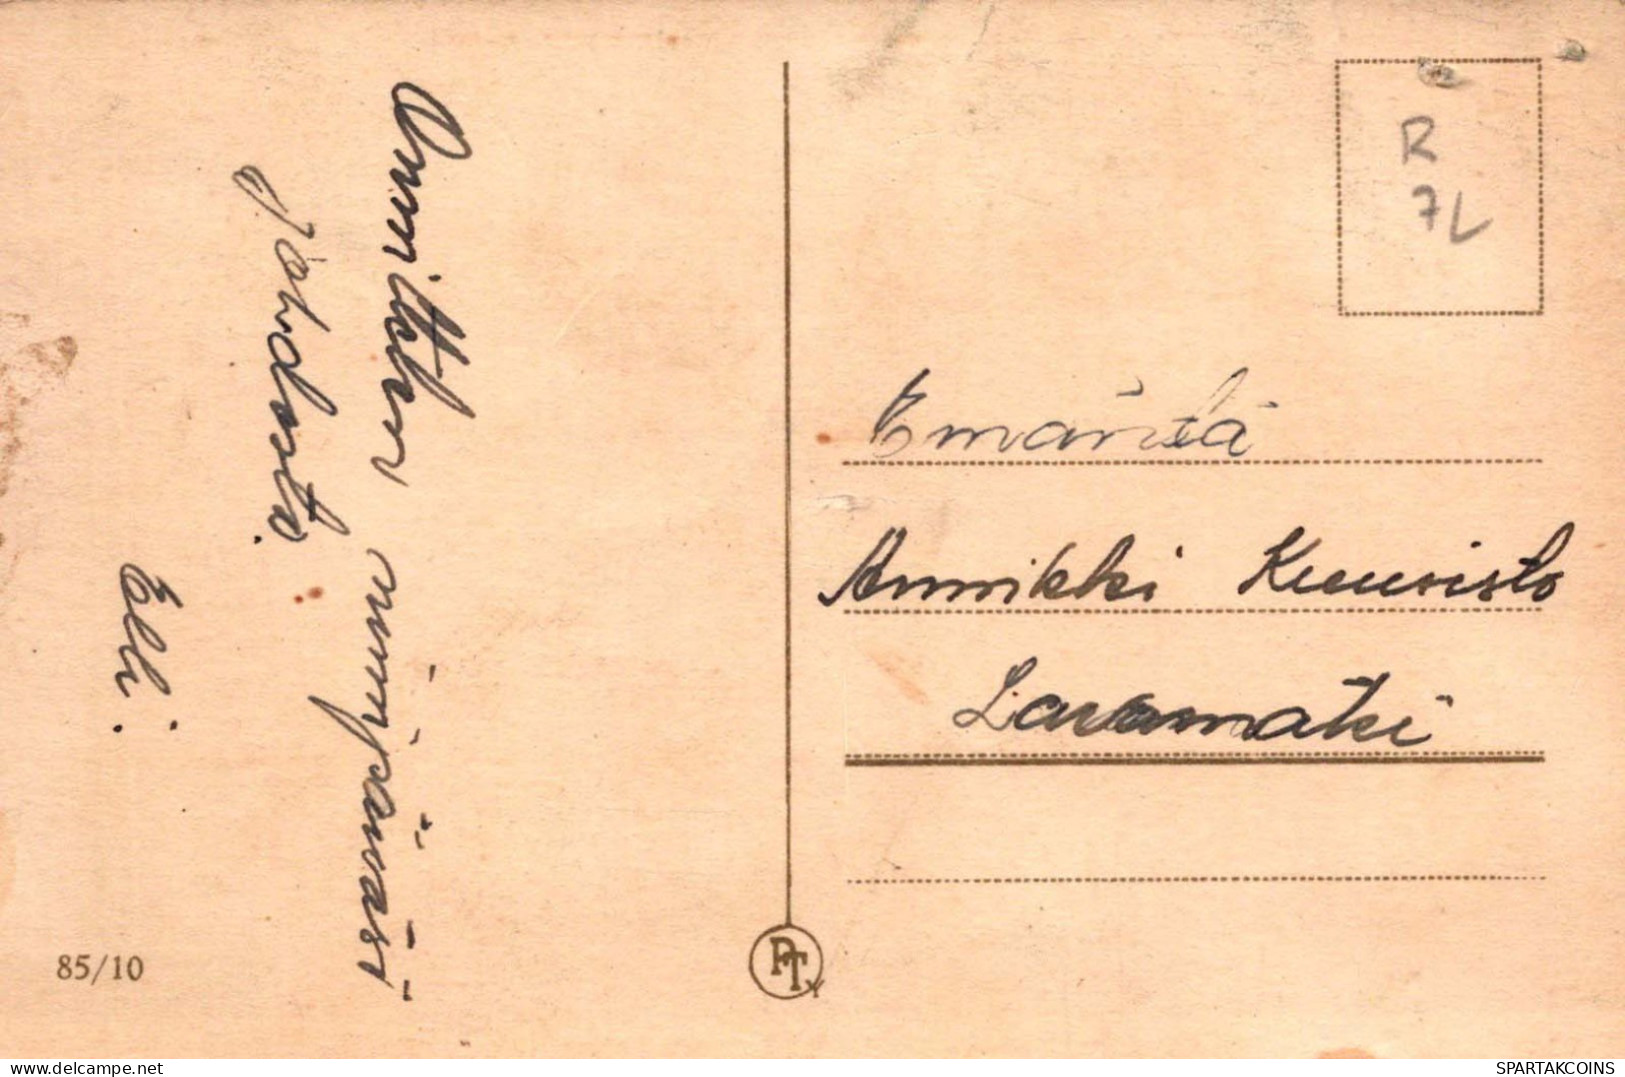 Onnittelen nimipäiväsi
johdosta.
Elli.
85/10
PTY
R
7L
Emäntä
Annikki Kuuvisto
Lavamäki
delcampe.net
SPARTAKCOINS